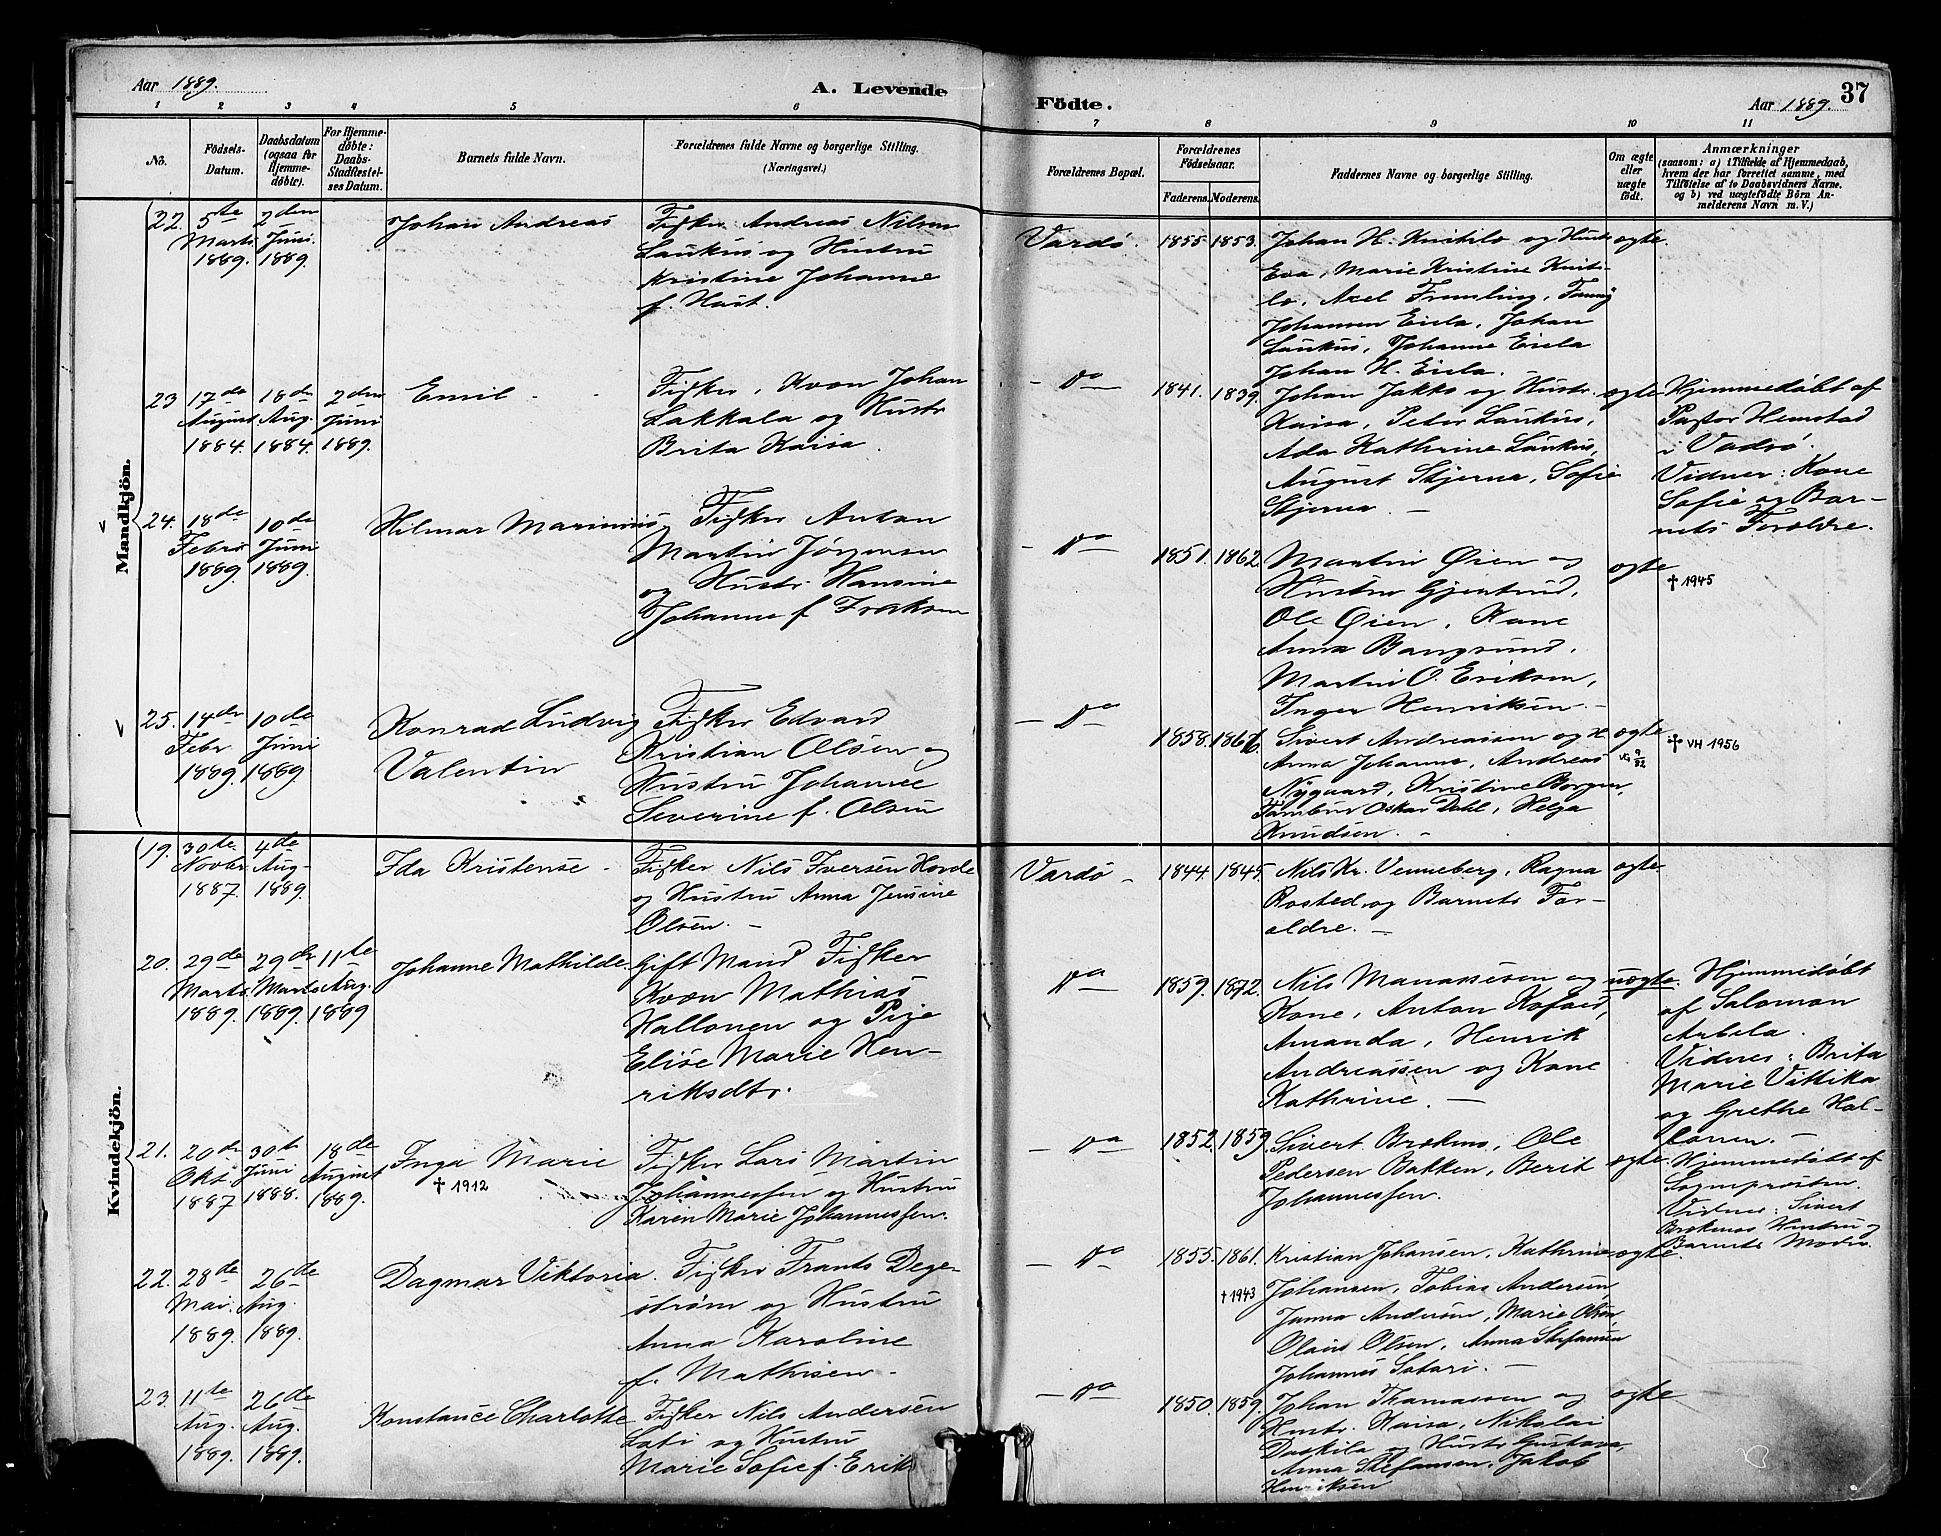 Aar 1889.
A. Levende
Födte.
Aar 1889.
37
1 2 3 4 5 6 7 8 9 10 11
No.
Födsels-
Datum.
Daabsdatum
(ogsaa for
Hjemme-
döbte).
For Hjemme-
döbte:
Daabs-
Stadfæstel-
ses Datum.
Barnets fulde Navn.
Forældrenes fulde Navne og borgerlige Stilling.
(Næringsvei.)
Forældrenes Bopæl.
Forældrenes
Födselsaar.
Faderens. Moderens.
Faddernes Navne og borgerlige Stilling.
Om ægte
eller
uægte
født.
Anmærkninger
(saasom: a) i Tilfælde af Hjemmedaab,
hvem der har forrettet samme, med
Tilföielse af to Daabsvidners Navne,
og b) ved uægtefödte Börn An-
melderens Navn m. V.)
Mandkjön.
22.
5te
Marts
1889.
2den
Juni.
1889.
Johan Andreas
Fisker Andreas Nilsen
Laukus og Hustru
Kristine Johanne
f. Hast.
Vardø.
1855 1853.
Johan H. Knitilo og Hust
Eva, Marie Kristine Knit-
lo, Axel Framling, Fanny
Johansen Eiela, Johan
Laukus, Johanne Eiela
Johan H. Eiela.
ægte.
23
17de
August
1884.
18de
Aug.
1884.
2den
Juni
1889.
Emil
Fisker, Kvæn Johan
Lakkala og Hustr
Brita Kaisa.
— Do —
1841. 1839.
Johan Jakko og Hustr.
Kaisa, Peter Laukus,
Ada Kathrine Laukus,
August Skjerna, Sofie
Skjerna. —
ægte
Hjemmedøbt af
Pastor Hemstad
i Vadsø.
Vidner: Kone
Sofie og Bar-
nets Forældre.
24.
18de
Febr
1889.
10de
Juni
1889.
Hilmar Marinius
Fisker Anton
Martin Jørgensen
og Hustr. Hansine
Johanne f. Fredriksen
— Do
1851. 1862
Martin Øien og
Hustru Gjertrud,
Ole Øien, Kone
Anna Bangsund,
Martin O. Eriksen,
Inger Henriksen. —
ægte
† 1945
25.
14de
Febr
1889.
10de
Juni
1889.
Konrad Ludvig
Valentin
Fisker Edvard
Kristian Olsen og
Hustru Johanne
Severine f. Olsen
— Do
1858.
Sivert Andreassen og H.
Anna Johanne, Andreas
Nygaard, Kristine Borgen,
Tambur Oskar Dahl, Helga
Knudsen. —
ægte
† VH 1956
Kvindekjön.
19.
30te
Novbr
1887.
4de
Aug.
1889.
Ida Kristense
Fisker Nils Iversen Hovde
og Hustru Anna Jensine
Olsen. —
Vardø —
1844 1845.
Nils Kr. Venneberg, Ragna
Rosted og Barnets For-
ældre. —
ægte.
20.
29de
Marts
1889.
29de
Marts
1889.
11te
Aug.
1889
Johanne Mathilde.
Gift Mand Fisker
Kvæn Mathias
Hallonen og Pige
Elise Marie Hen-
riksdtr.
Do —
1859. 1872.
Nils Manassesen og
Kone, Anton Kofoed,
Amanda, Henrik
Andreassen og Kone
Kathrine. —
uægte.
Hjemmedøbt
af Salomon
Arbela.
Vidner: Brita
Marie Vittika
og Grethe Hal-
lonen. —
21.
20de
Okt.
1887
30te
Juni
1888.
18de
August
1889.
Inga Marie
† 1912
Fisker Lars Martin
Johannessen og Hustru
Karen Marie Johannessen.
— Do —
1852. 1859.
Sivert Brekmo, Ole
Pedersen Bakken, Berit
Johannessen.
ægte.
Hjemmedøbt af
Sogneprosten.
Vidner: Sivert
Brekmos Hustru og
Barnets Moder.
22.
28de
Mai.
1889.
26de
Aug.
1889.
Dagmar Viktoria.
Fisker Frants Dege-
strøm og Hustru
Anna Karoline
f. Mathisen —
— Do —
1855. 1861.
† 1943
Kristian Johansen, Kathrine
Johansen, Tobias Andersen,
Janna Andersen, Marie Olsen,
Olaus Olsen, Anna Stefansen
Johannes Satari. —
ægte.
23.
11te
Aug.
1889.
26de
Aug.
1889.
Konstance Charlotte
Fisker Nils Andersen
Lati og Hustru
Marie Sofie f. Erik
— Do —
1850. 1859.
Johan Thomassen og
Hustr. Kaisa, Nikolai
Daskila og Hustr Gustava,
Anna Stefansen, Jakob
Henriksen
ægte